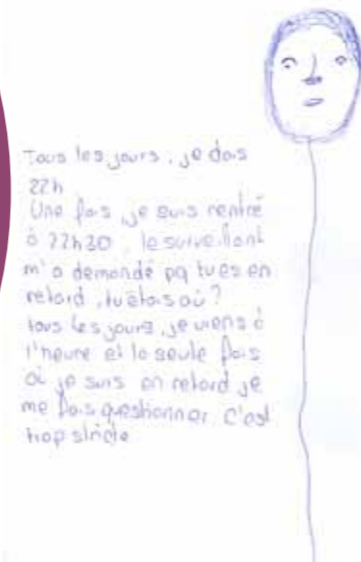 Tous les jours, je dois
22h
Une fois, je suis rentré
à 22h30, le surveillant
m'a demandé pq tu es en
retard, tu étais où ?
tous les jours, je viens à
l'heure et la seule fois
où je suis en retard je
me fais questionner. C'est
trop stricte